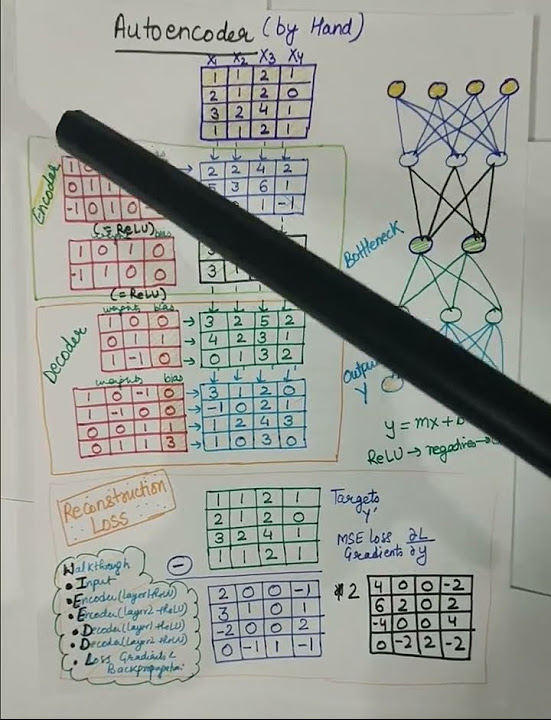 Autoencoder (by Hand)
X1 X2 X3 X4
1 1 2 1
2 1 2 0
3 2 4 1
1 1 2 1
Encoder
1
0 1 1
-1 0 1 0
2 2 4 2
3 6 1
1 -1
(= ReLU)
bias
1 0 1 0
-1 1 0 0
3
3 1
(= ReLU)
Bottleneck
Decoder
weights bias
1 0 0
0 1 1
1 -1 0
3 2 5 2
4 2 3 1
0 1 3 2
weights bias
1 0 -1 0
1 -1 0 0
0 0 1 1
0 1 1 3
3 1 2 0
-1 0 2 1
1 2 4 3
1 0 3 0
Output
Y
y = mx +
ReLU → negatives →
Reconstruction
Loss
1 1 2 1
2 1 2 0
3 2 4 1
1 1 2 1
Targets
Y'
MSE Loss ∂L
Gradients ∂y
Walkthrough
• Input
• Encoder (layer1+ReLU)
• Encoder (layer2+ReLU)
• Decoder (layer1+ReLU)
• Decoder (layer2+ReLU)
• Loss Gradients &
Backpropagation
−
2 0 0 -1
3 1 0 1
-2 0 0 2
0 -1 1 -1
*2
4 0 0 -2
6 2 0 2
-4 0 0 4
0 -2 2 -2